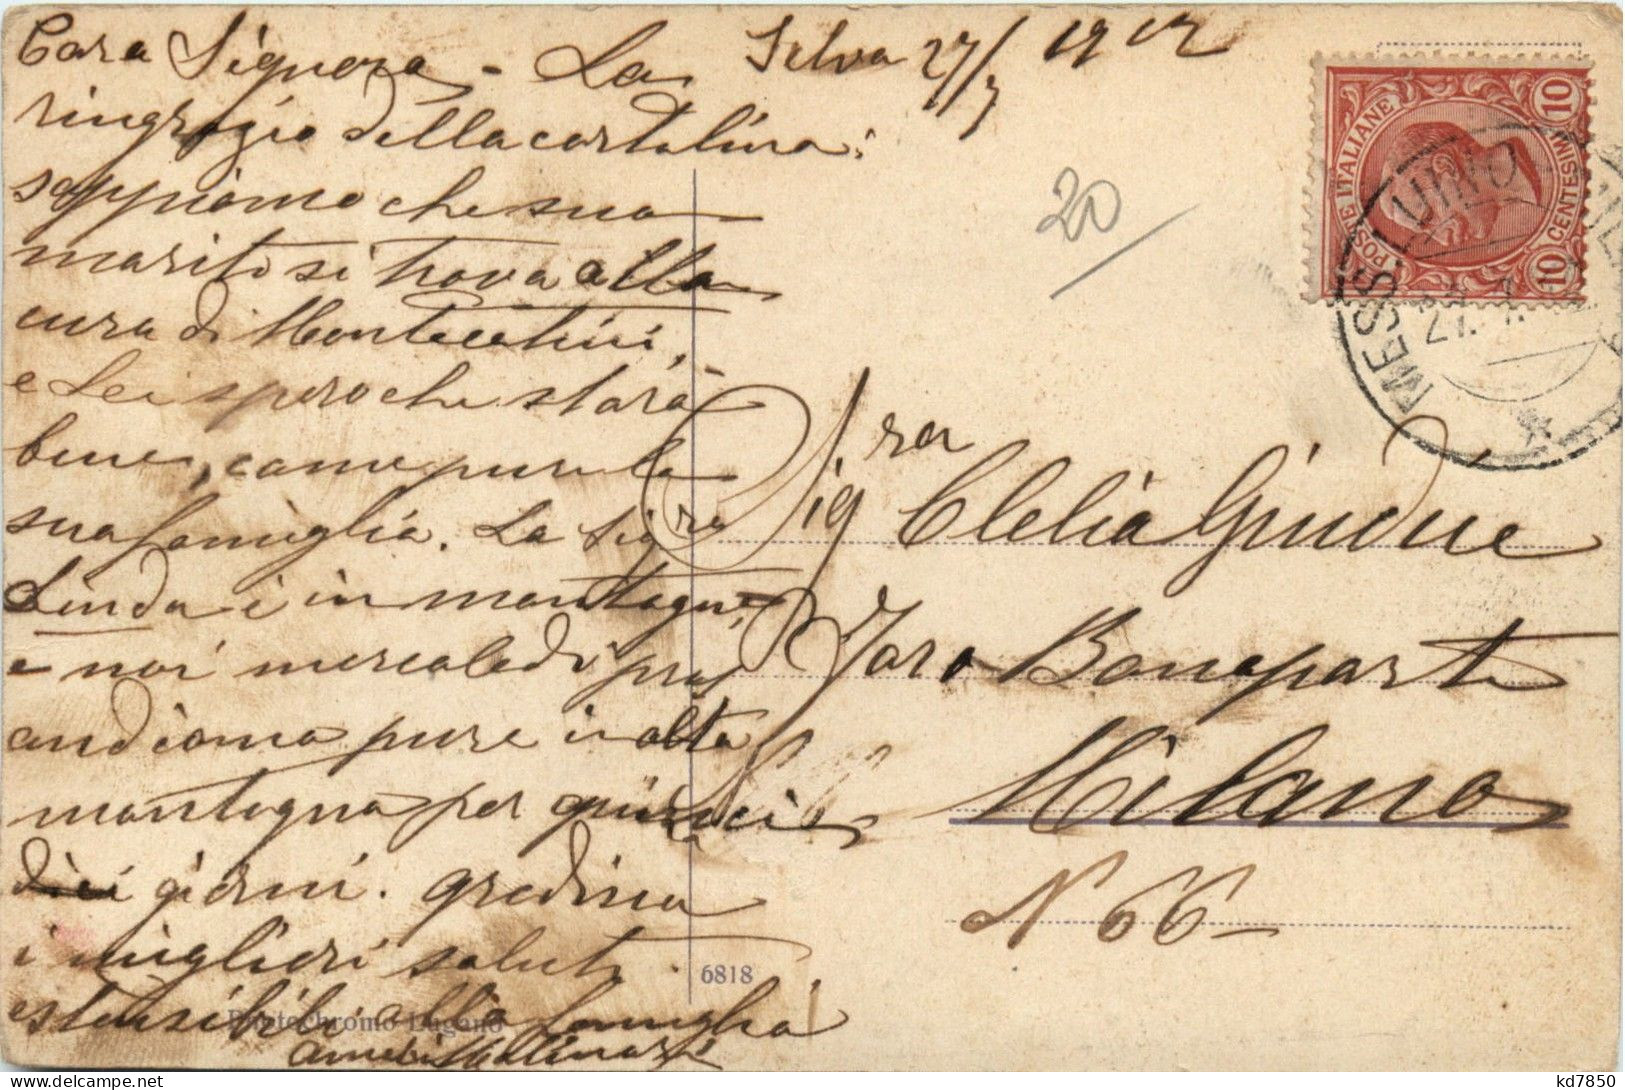 Selva 27/7 1912
Cara Signora - La
ringrazio della cartolina:
sappiamo che suo
marito si trova alla
cura di Montecatini,
e Lei spero che starà
bene, come pure la
sua famiglia. La Sigra
Linda è in montagna,
e noi mercoledì pros
andiamo pure in alta
montagna per quindici
giorni. gradisca
i migliori saluti
estensibili alla famiglia
Molinari
Sigra
Clelia Giudice
Foro Bonaparte
Milano
N 66
20
POSTE ITALIANE
10 CENTESIMI 10
MESS. LUINO
27. 7.
6818
Photochromo Lugano
kd7850